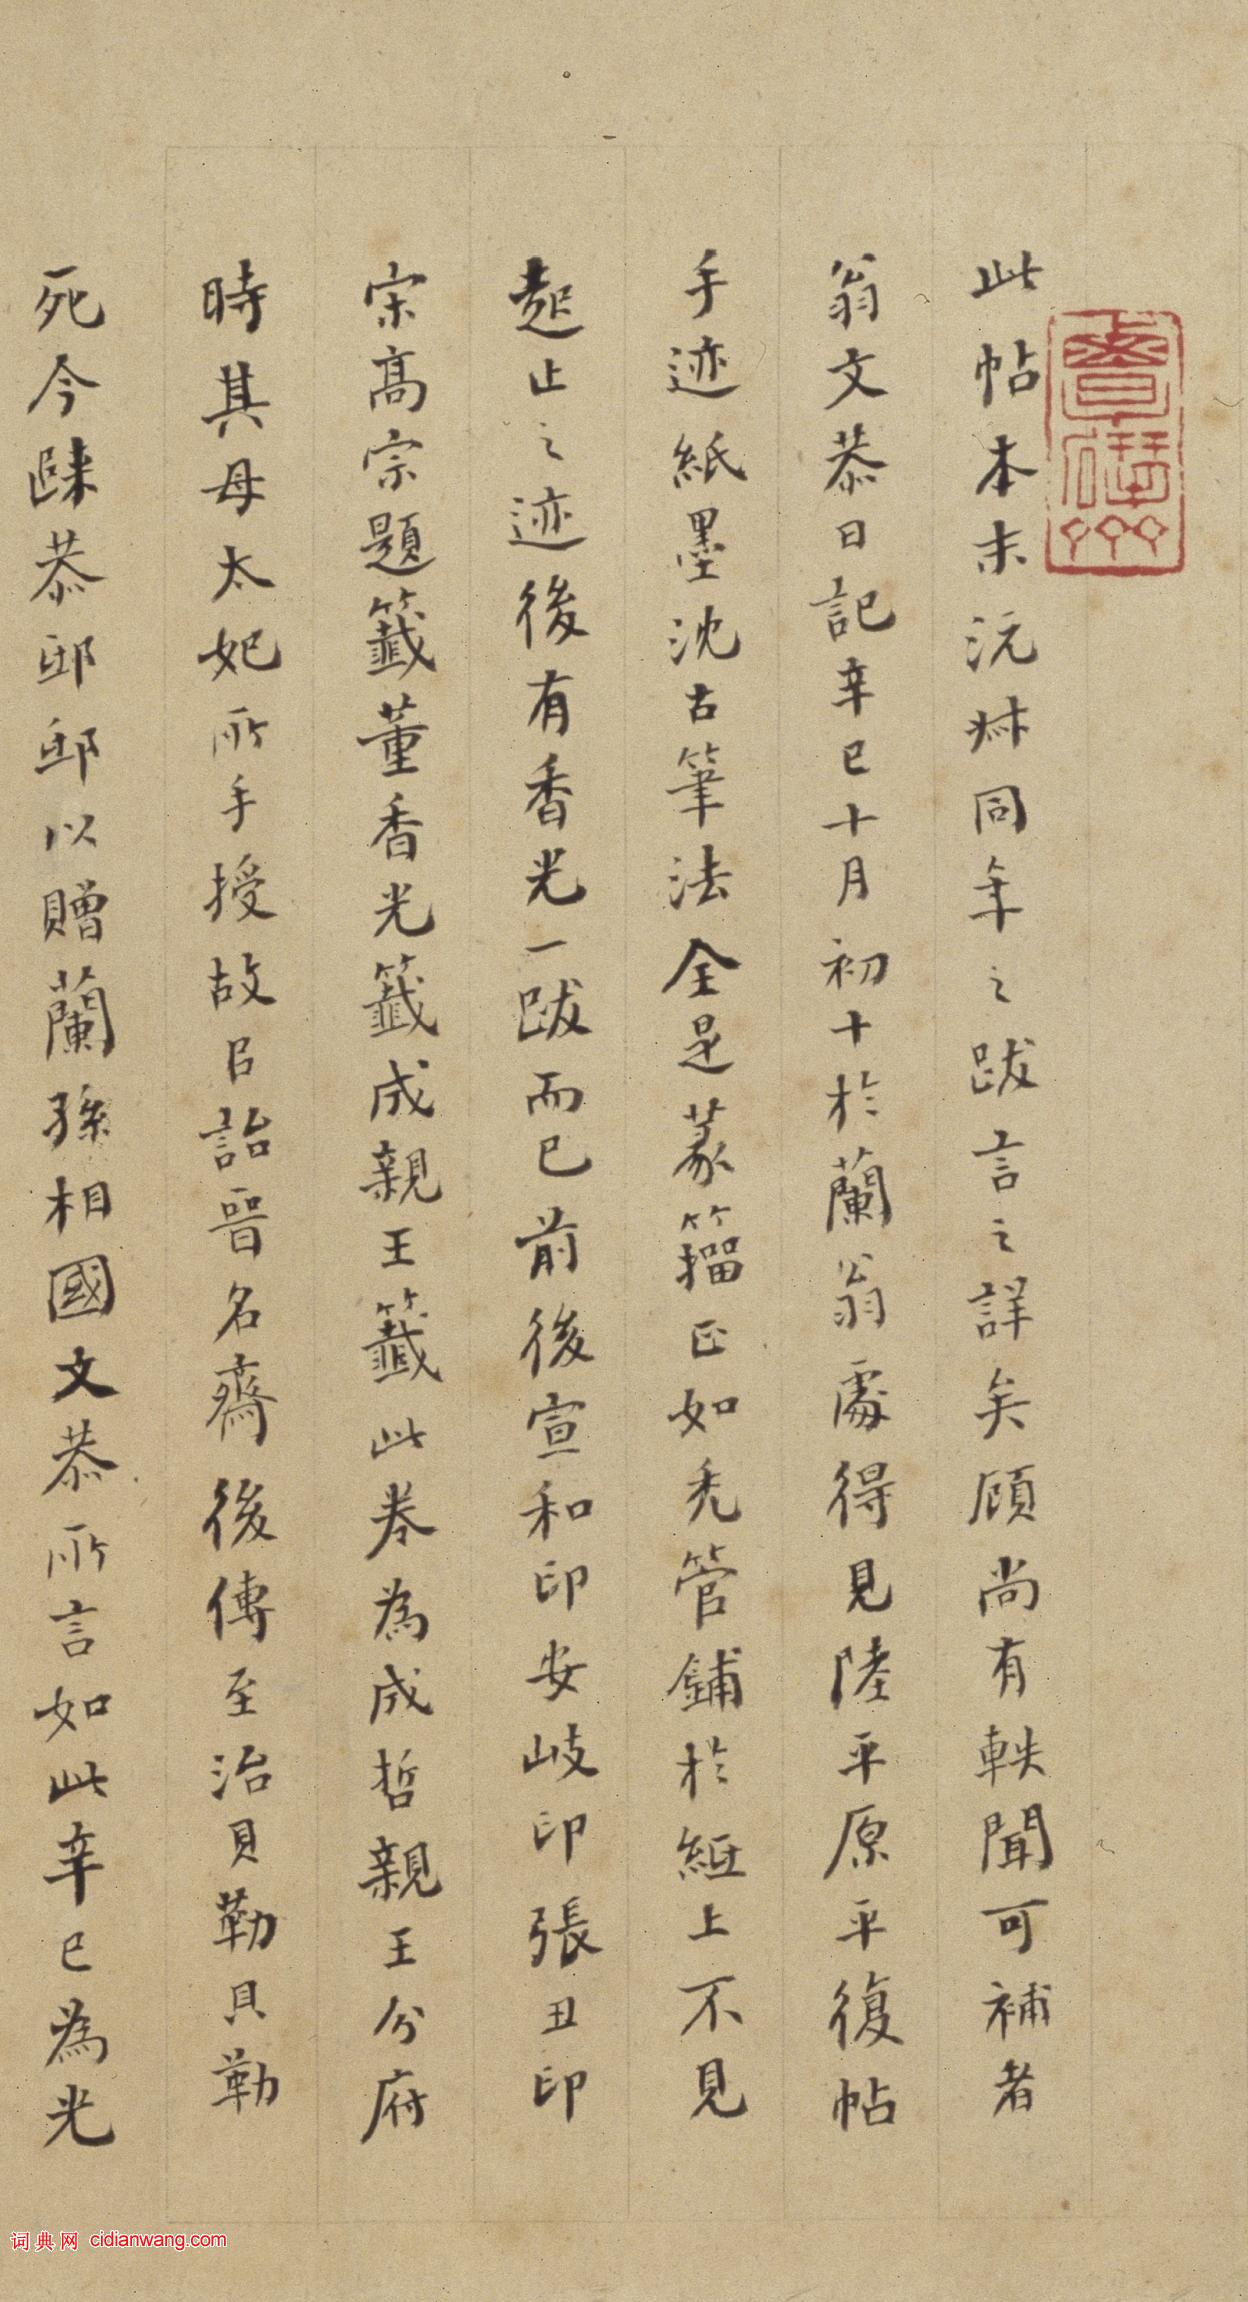 此帖本末沅叔同年之跋言之詳矣顧尚有軼聞可補者
翁文恭日記辛巳十月初十於蘭翁處得見陸平原平復帖
手迹紙墨沈古筆法全是篆籀正如秃管鋪於紙上不見
起止之迹後有香光一跋而已前後宣和印安岐印張丑印
宋高宗題籤董香光籤成親王籤此卷為成哲親王分府
時其母太妃所手授故以詒晉名齋後傳至治貝勒貝勒
死今歸恭邸邸以贈蘭孫相國文恭所言如此辛巳為光
词典网 cidianwang.com